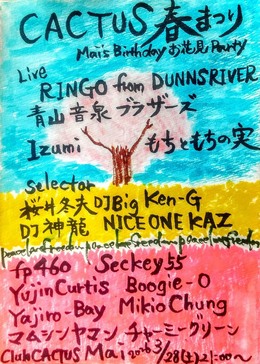 CACTUS 春まつり
Mai's Birthday お花見 Party
Live
RINGO from DUNNSRIVER
青山音泉ブラザーズ
Izumi もちともちの実
Selector
桜井冬夫 DJ Big Ken-G
DJ神龍 NICE ONE KAZ
fp460 Seckey55
Yujin Curtis Boogie-O
Yajiro-Bay Mikio Chung
マムシンヤマン チャーミーグリーン
Club CACTUS Mai 3/28(土)21:00〜